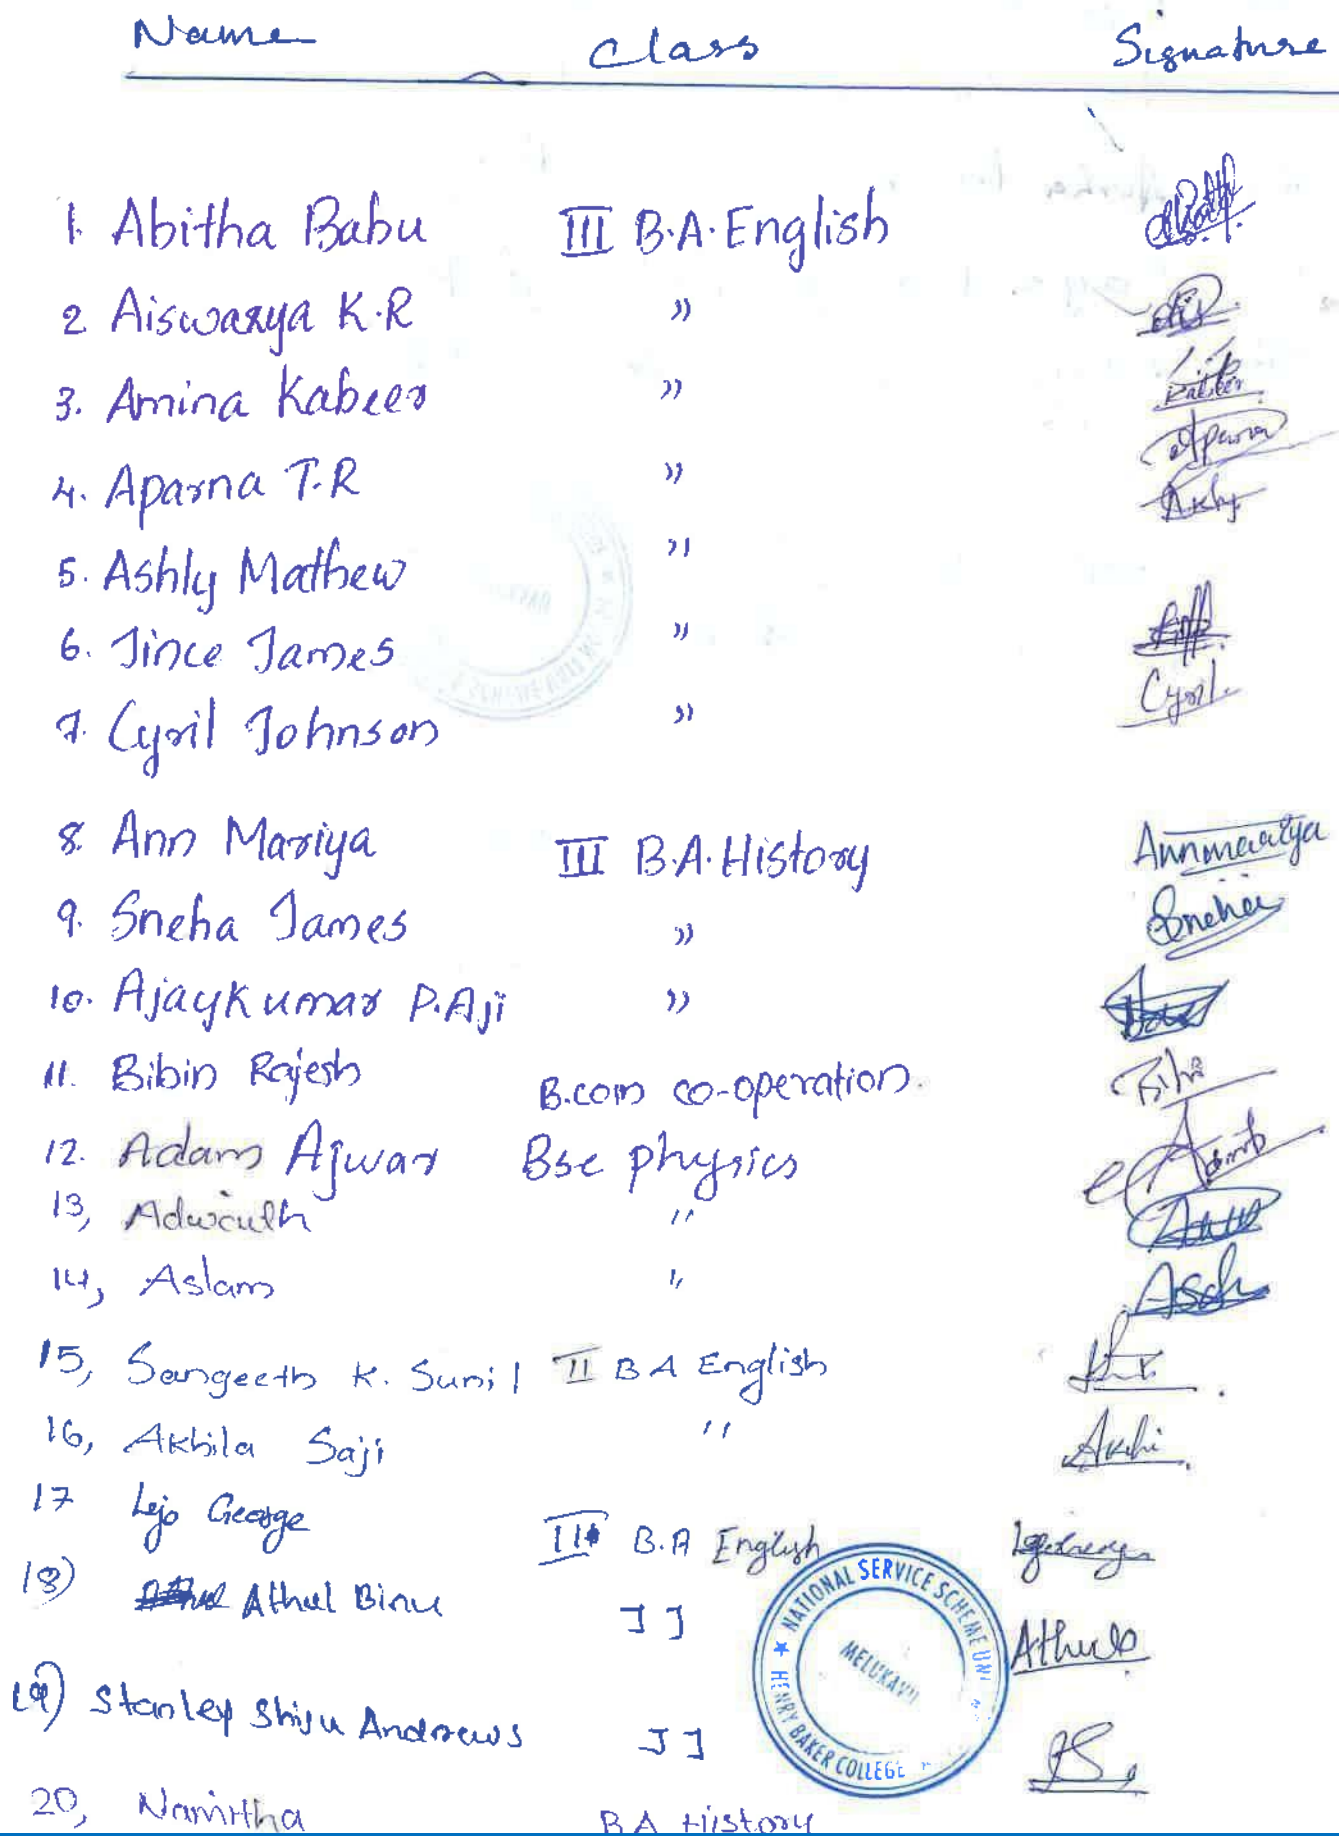 Name Class Signature
1. Abitha Babu III B.A. English
2 Aiswarya K.R "
3. Amina Kabeer " Kabeer
4. Aparna T.R " Aparna
5. Ashly Mathew "
6. Jince James "
7. Cyril Johnson " Cyril.
8. Ann Mariya III B.A. History Annmariya
9. Sneha James " Sneha
10. Ajaykumar P. Aji "
11. Bibin Rajesh B.com co-operation.
12. Adam Ajwar Bsc physics
13, Adwaith "
14, Aslam "
15, Sangeeth K. Sunil II BA English
16, Akhila Saji " Akhi
17 Lejo George III B.A English
18) Athul Binu JJ Athul
19) Stanley Shiju Andrews JJ
20, Namitha BA History
NATIONAL SERVICE SCHEME UNI
HENRY BAKER COLLEGE
MELUKAVU